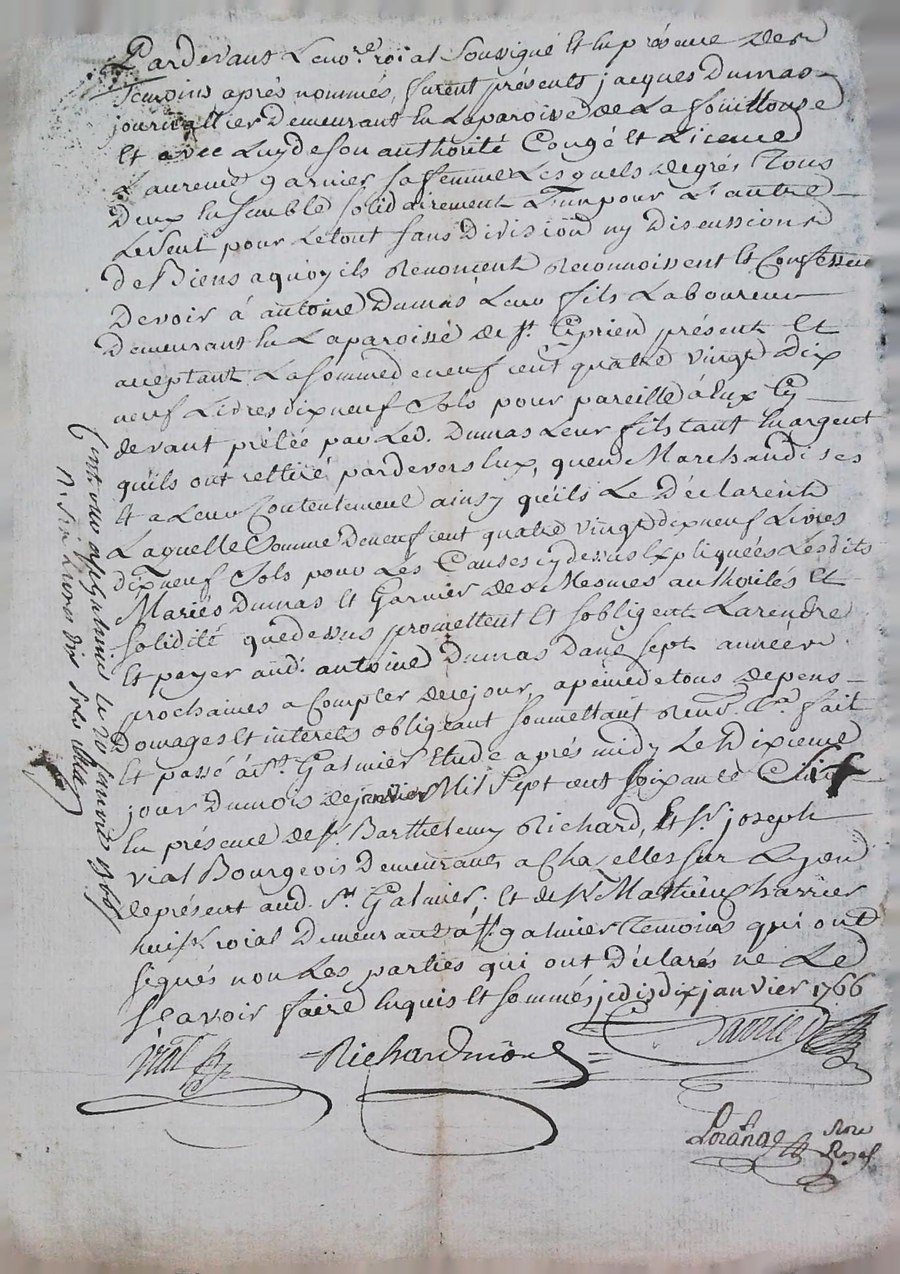 Pardevant Le no.re roial soussigné Et en présence des
Temoins aprés nommés, furent présents jacques Dumas
journallier Demeurant En La paroisse de La fouillouse
Et avec Luy de son authorité Congé Et Licence
Laurence garnier sa femme Lesquels degrés Tous
Deux Ensemble solidairement L'un pour L'autre
Le seul pour Le tout sans Division ny Discussion
De Biens a quoy ils Renoncent Reconnoissent Et Confessent
Devoir á antoine Dumas Leur fils Laboureur
Demeurant En La paroisse de st. Ciprien présent Et
acceptant La somme de neuf cent quatre vingt dix
neuf Livres dix neuf sols pour pareille á Eux Cy
devant prétée par Led. Dumas Leur fils tant En argent
quils ont rettiré pardevers Eux, quen Marchandises
Et a Leur Contentement ainsy quils Le Déclarent
Laquelle somme de neuf cent quatre vingt dix neuf Livres
dix neuf sols pour Les Causes cy dessus Expliquées Lesdits
Mariés Dumas Et Garnier des Mesmes authorités Et
solidité que dessus promettent Et sobligent La rendre
Et payer aud. antoine Dumas dans sept années
prochaines a Compter de ce jour, a peine de tous depens
Domages Et interets obligeant soumettant Renv. Cr. fait
Et passé á st. Galmier Etude aprés midy Le Dixieme
jour Du mois de janvier Mil sept cent soixante six
En présence de sr. Barthelemy Richard, Et sr. joseph
vial Bourgeois Demeurants a Chazelles sur Lyon
de présent aud. st. Galmier. Et de sr. Mathieu Charrier
huissr. roial Demeurant á st. galmier Temoins qui ont
signés non Les parties qui ont Déclarés ne Le
sçavoir faire Enquis Et sommés je dis dix janvier 1766
Vial Richard
Lorange Nore
Royal
Cont. a st Galmier Le 20 janvier 1766
sols